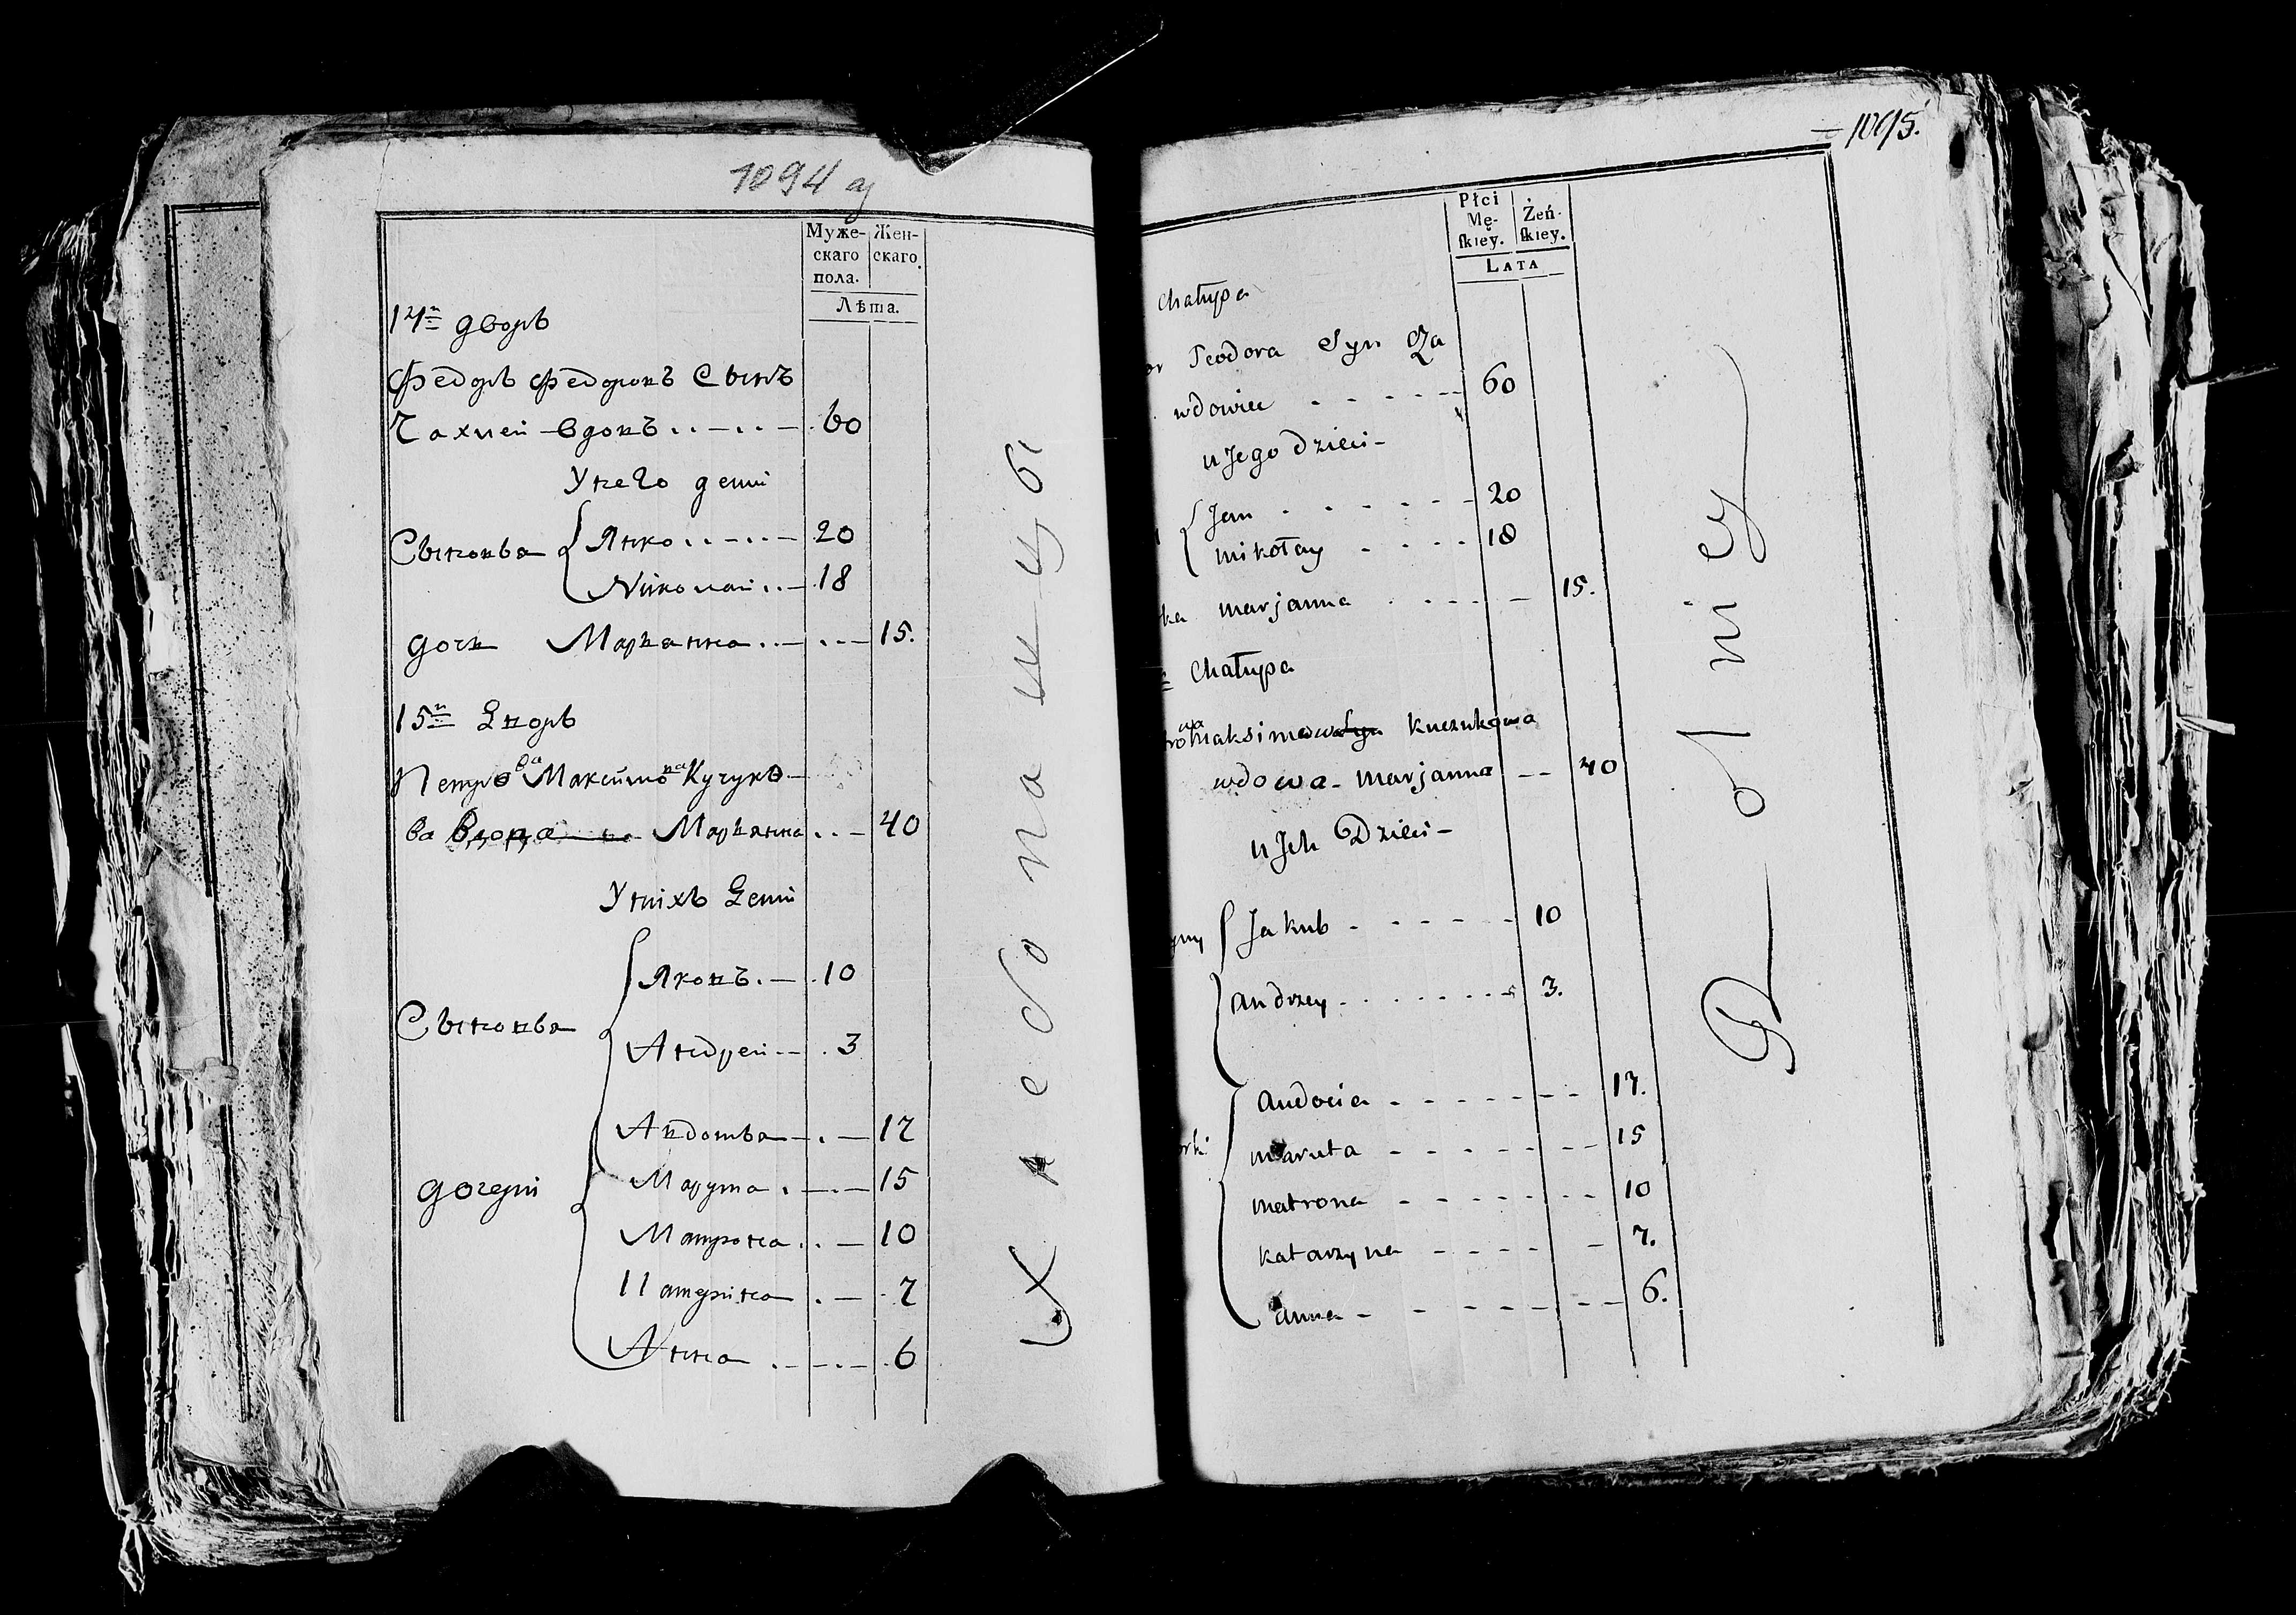 1094 
Муже-
скаго
пола.
Жен-
скаго.
Лѣта.
14й дворъ
Федоръ Федоровъ Сынъ
Чахлей вдовъ 60
У него дети
Сыновья
Янко 20
Николай 18
дочь Марьянна 15.
15й Дворъ
Петрова Максимова Кучуко-
ва Вдова Марьянна 40
У нихъ Дети
Сыновья
Яковъ 10
Андрей 3
дочери
Авдотья 17
Марута 15
Матрона 10
Катерина 7
Анна 6
1095.
Płci
Mę-
ſkiey.
Żeń-
ſkiey.
Lata
Chałupa
or Teodora Syn Cza
wdowiec 60
u Jego dzieci
Jan 20
Mikołay 18
ka Marjanna 15.
Chałupa
Maksimowa Kuczukowa
wdowa Marjanna 40
u Jch Dzieci
yny
Jakub 10
Andrzey 3.
orki
Audocia 17.
Maruta 15
Matrona 10
Katarzyna 7.
Anna 6.